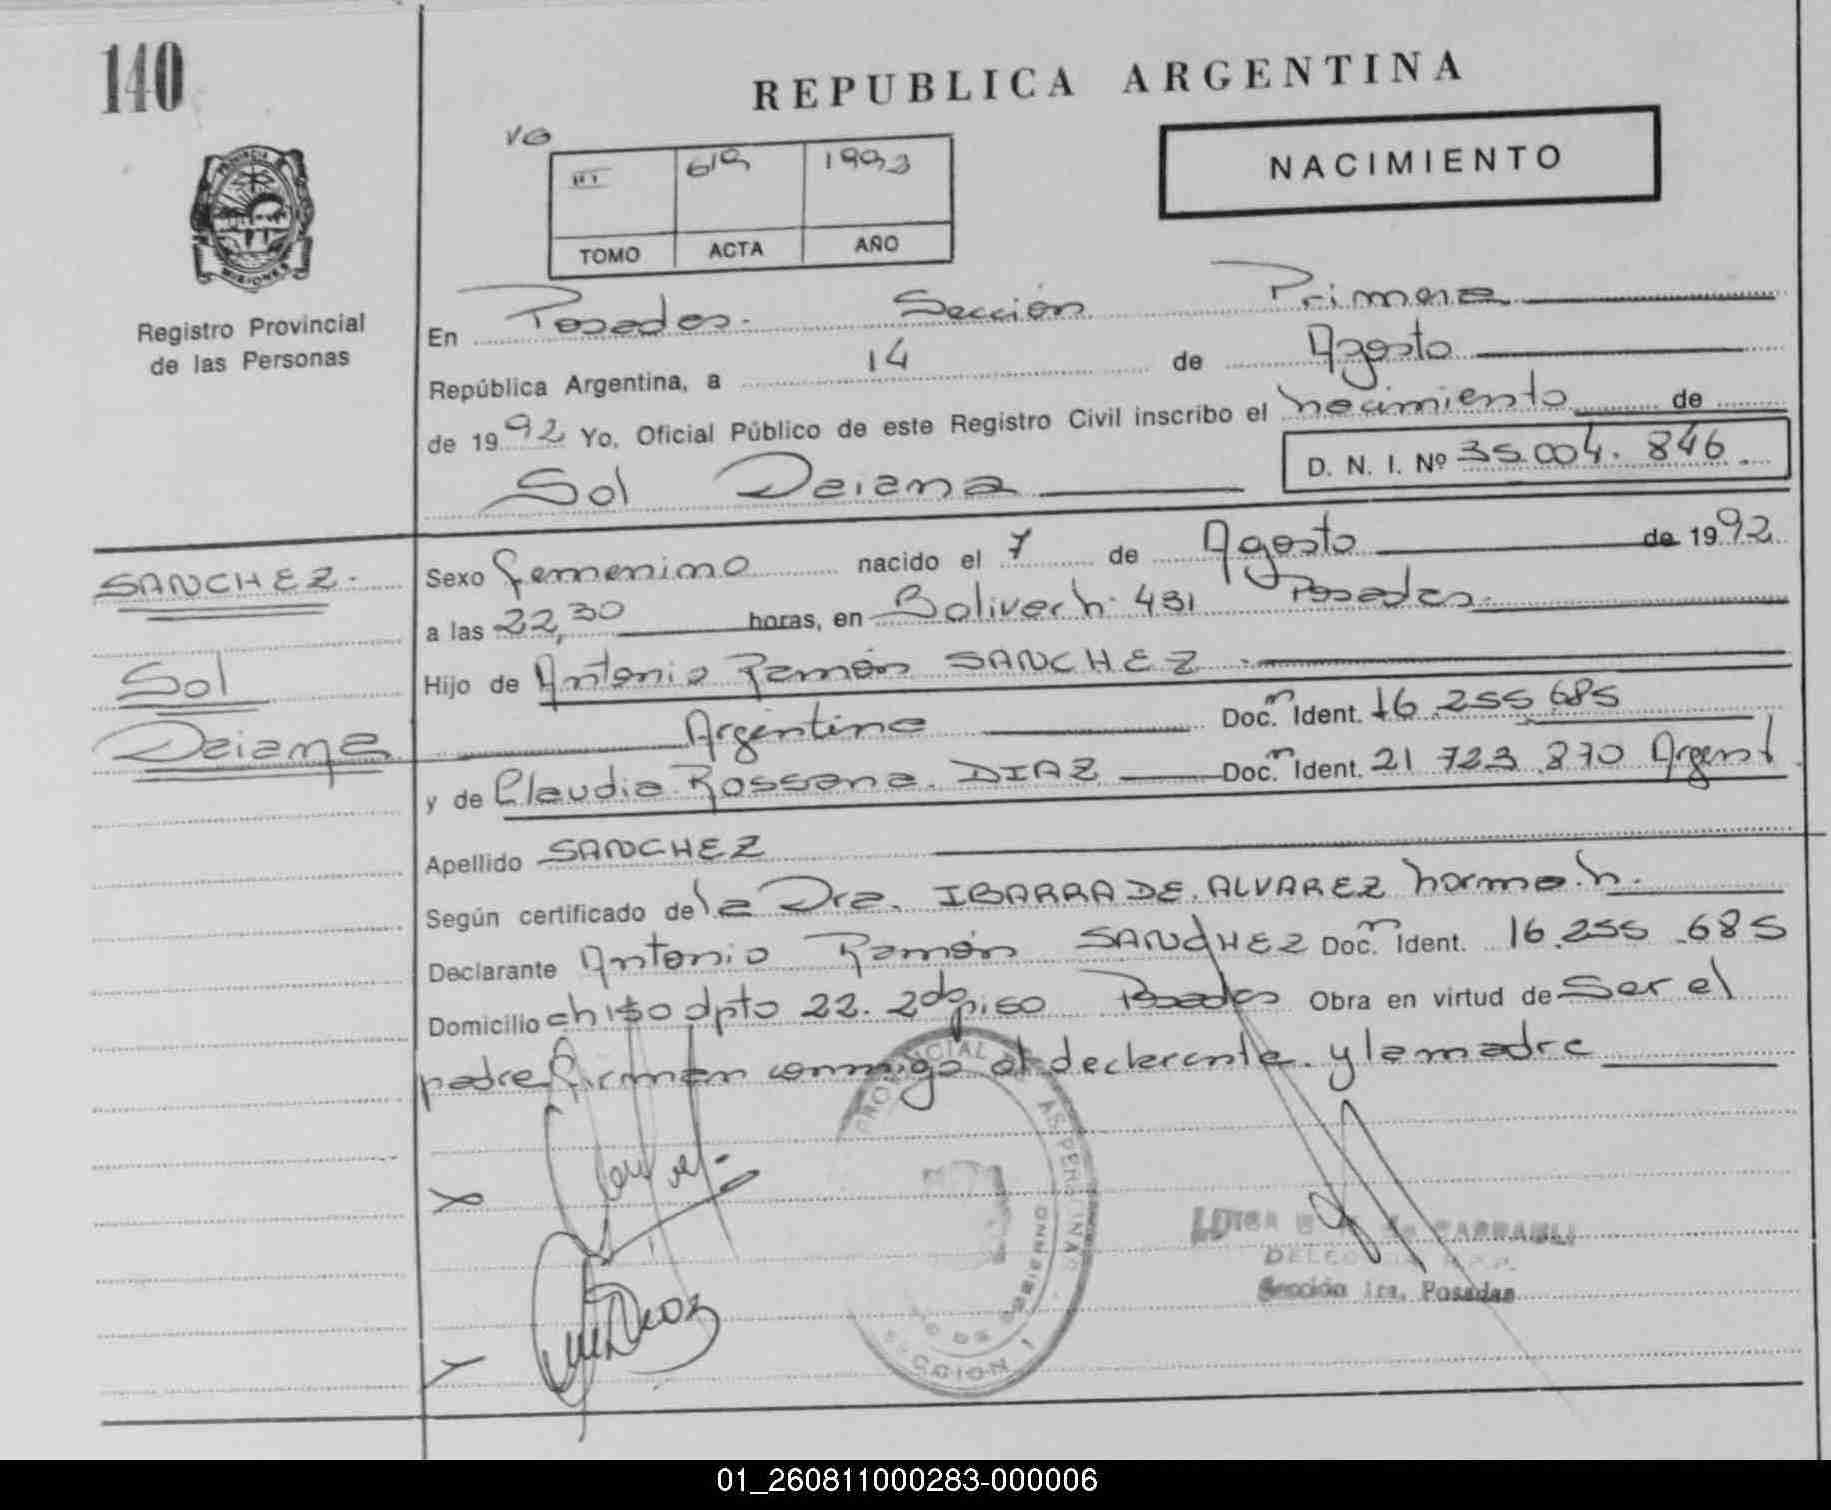 140
REPUBLICA ARGENTINA
NACIMIENTO
VG
III 619 1992
TOMO ACTA AÑO
PROVINCIA DE
MISIONES
Registro Provincial
de las Personas
En Posadas. Sección Primera
República Argentina, a 14 de Agosto
de 1992 Yo, Oficial Público de este Registro Civil inscribo el nacimiento de
D. N. I. Nº 35.004.846.
Sol Daiana
SANCHEZ.
Sol
Daiana
Sexo femenino nacido el 7 de Agosto de 1992
a las 22,30 horas, en Bolivar h. 431 Posadas.
Hijo de Antonio Ramón SANCHEZ.
Argentino Doc. n Ident. 16.255.685
y de Claudia Rossana. DIAZ Doc. n Ident. 21 723.870 Argent.
Apellido SANCHEZ
Según certificado de la Dra. IBARRA DE. ALVAREZ Norma.h.
Declarante Antonio Ramón SANCHEZ Doc. n Ident. 16.255.685
Domicilio ch 150 dpto 22. 2do piso Posadas Obra en virtud de Ser el
padre firman conmigo el declarante. y la madre
PROVINCIAL
SECCION 1
LUISA
Sección 1ra. Posadas
01_260811000283-000006